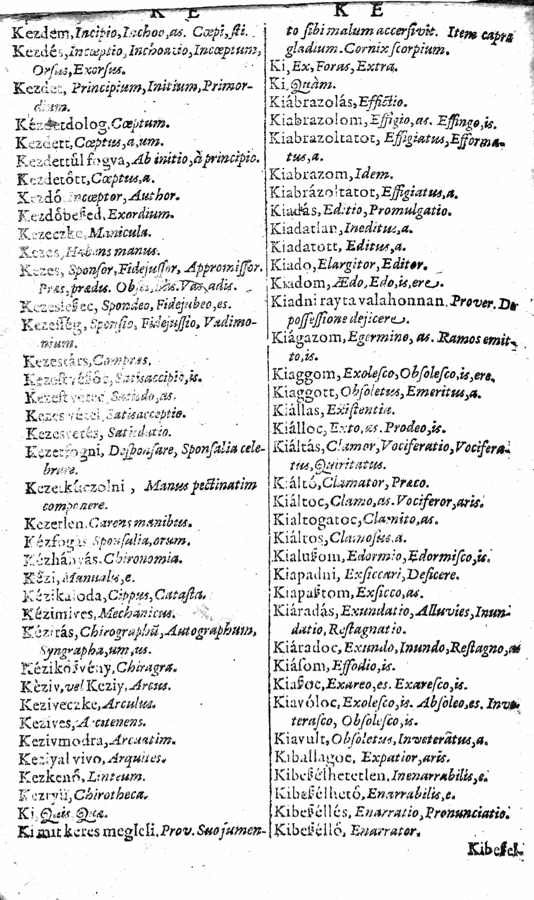 K E
Kezdem, Incipio, Inchoo, as. Cœpi, sti.
Kezdés, Incœptio, Inchoatio, Incœptum,
Orsus, Exorsus.
Kezdet, Principium, Initium, Primor-
dium.
Kézdetdolog, Cœptum.
Kezdett, Cœptus, a, um.
Kezdettûl fogva, Ab initio, à principio.
Kezdetôtt, Cœptus, a.
Kezdô, Incœptor, Author.
Kezdôbeßed, Exordium.
Kezeczke, Manicula.
Kezes, Habens manus.
Kezes, Sponsor, Fidejussor, Appromissor.
Præs, prædis. Vas, adis.
Kezeslebec, Spondeo, Fidejubeo, es.
Kezesség, Sponsio, Fidejussio, Vadimo-
nium.
Kezestárs, Compræs.
Satisaccipio, is.
Satisdo, as.
Kezes vétel, Satisacceptio.
Kezesvetés, Satisdatio.
Kezetfogni, Desponsare, Sponsalia cele-
brare.
Kezetkûczolni, Manus pectinatim
componere.
Kezetlen, Carens manibus.
Kézfogás Sponsalia, orum.
Kézhányás, Chironomia.
Kézi, Manualis, e.
Kézikaloda, Cippus, Catasta.
Kézimives, Mechanicus.
Kézirás, Chirographũ, Autographum,
Syngrapha, um, us.
Kézikôßvény, Chiragra.
Kèziv, vel Keziy, Arcus.
Keziveczke, Arculus.
Kezives, Arcitenens.
Kezivmodra, Arcuatim.
Keziyal vivo, Arquites.
Kezkenô, Linteum.
Keztyû, Chirotheca.
Ki, Quis, Quæ.
Ki mit keres megleli, Prov. Suo jumen-
K E
to sibi malum accersivit. Item capra
gladium. Cornix scorpium.
Ki, Ex, Foras, Extra.
Ki, Quàm.
Kiábrazolás, Effictio.
Kiabrazolom, Effigio, as. Effingo, is.
Kiabrazoltatot, Effigiatus, Efforma-
tus, a.
Kiabrazom, Idem.
Kiabrázoltatot, Effigiatus, a.
Kiadás, Editio, Promulgatio.
Kiadatlan, Ineditus, a.
Kiadatott, Editus, a.
Kiado, Elargitor, Editor.
Kiadom, Ædo, Edo, is, ere.
Kiadni rayta valahonnan. Prover. De
possessione dejicere.
Kiágazom, Egermino, as. Ramos emit-
to, is.
Kiaggom, Exolesco, Obsolesco, is, ere.
Kiaggott, Obsoletus, Emeritus, a.
Kiállas, Existentia.
Kiálloc, Exto, as. Prodeo, is.
Kiáltás, Clamor, Vociferatio, Vocifera-
tus, Quiritatus.
Kiáltó, Clamator, Præco.
Kiáltoc, Clamo, as. Vociferor, aris.
Kialtogatoc, Clamito, as.
Kiáltos, Clamosus, a.
Kialußom, Edormio, Edormisco, is.
Kiapadni, Exsiccari, Deficere.
Kiapaßtom, Exsicco, as.
Kiáradás, Exundatio, Alluvies, Inun-
datio, Restagnatio.
Kiáradoc, Exundo, Inundo, Restagno, as
Kiásom, Effodio, is.
Kiaßoc, Exareo, es. Exaresco, is.
Kiavóloc, Exolesco, is. Absoleo, es. Inve-
terasco, Obsolesco, is.
Kiavult, Obsoletus, Inveteratus, a.
Kiballagoc, Expatior, aris.
Kibeßélhetetlen, Inenarrabilis, e.
Kibeßélhetô, Enarrabilis, e.
Kibeßéllés, Enarratio, Pronunciatio.
Kibeßéllô, Enarrator.
Kibeßel-